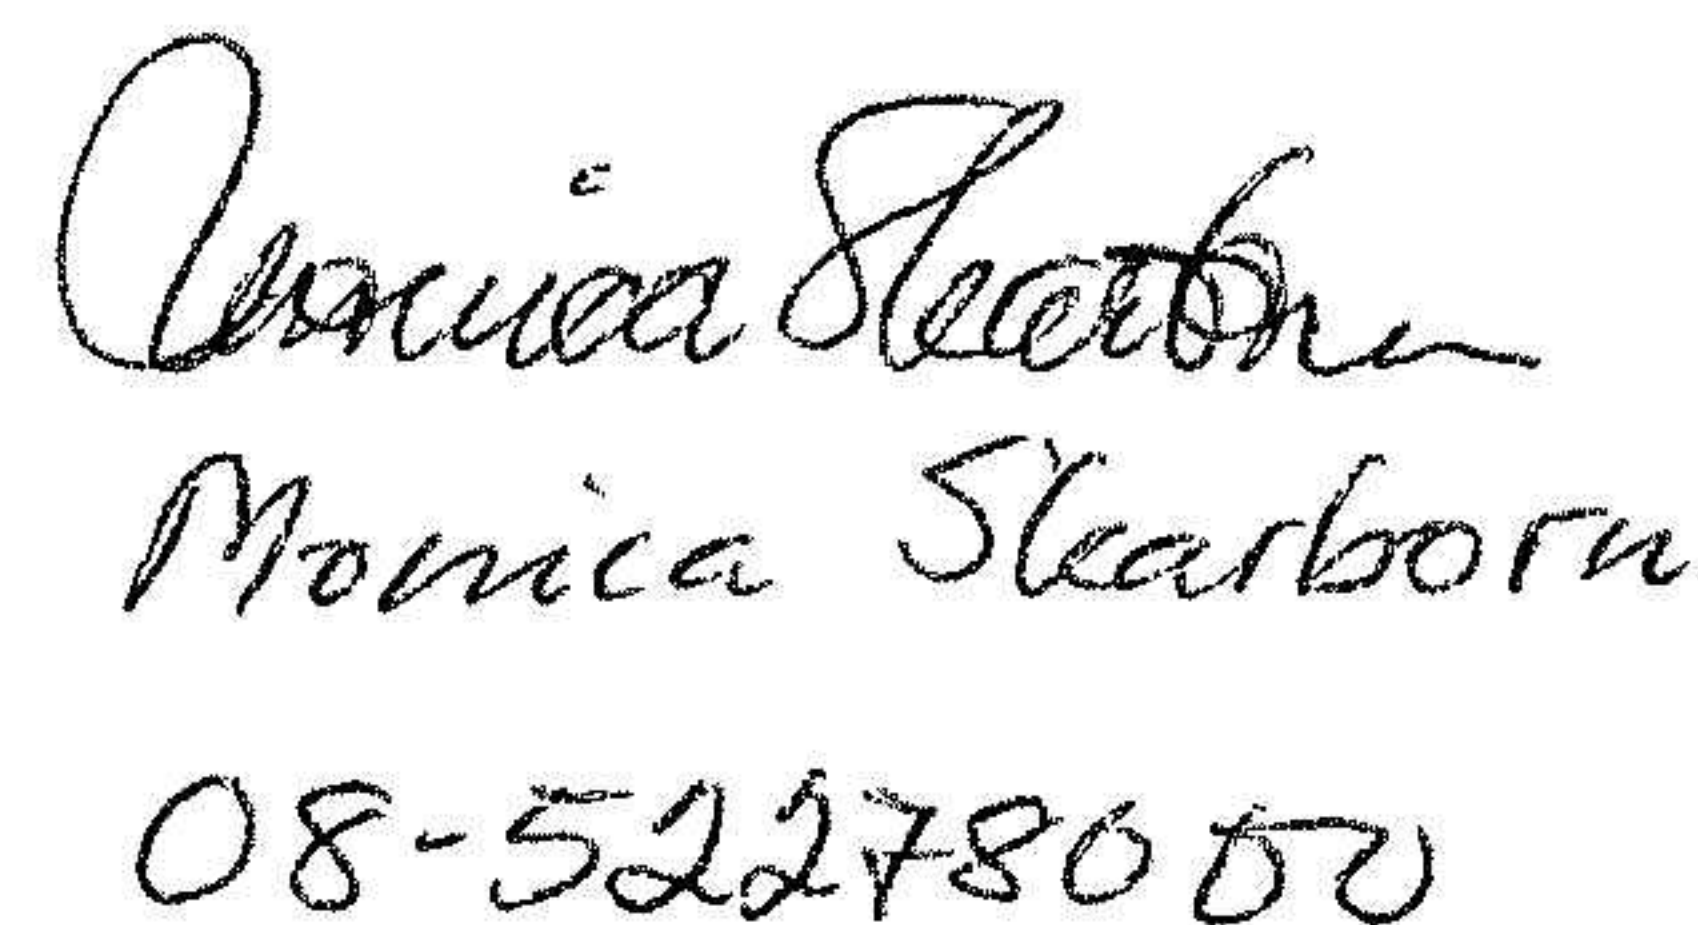 Monica Skarborn
Monica Skarborn
08-52278000